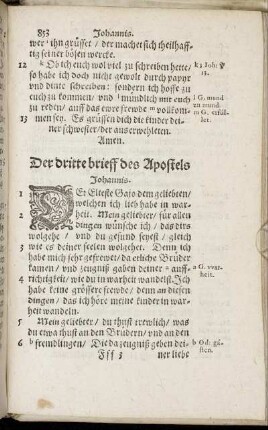 833 Johannis.
wer ihn grüsset / der machet sich theilhaff-
tig seiner bösen wercke.
12 k Ob ich euch wol viel zu schreiben hette /
so habe ich doch nicht gewolt durch papyr
vnd dinte schreiben: sondern ich hoffe zu
euch zu kommen / vnd l mündlich mit euch
zu reden / auff das ewre frewde m vollkom-
13 men sey. Es grüssen dich die kinder dei-
ner schwester / der auserwehleten.
Amen.
k 3 Joh:
l G. mund
zu mund.
m G. erfül-
let.
Der dritte brieff des Apostels
Johannis.
1 DEr Elteste Gajo dem geliebten /
welchen ich lieb habe in war-
2 heit. Mein geliebter / für allen
dingen wünsche ich / das dirs
wolgehe / vnd du gesund seyest / gleich
3 wie es deiner seelen wolgehet. Denn ich
habe mich sehr gefrewet / da etliche Brüder
kamen / vnd zeugniß gaben deiner a auff-
4 richtigkeit / wie du in warheit wandelst. Ich
habe keine grössere frewde / denn an diesen
dingen / das ich höre meine kinder in war-
heit wandeln.
5 Mein geliebter / du thust trewlich / was
du etwa thust an den Brüdern / vnd an den
6 b frembdlingen / Die da zeugniß geben dei-
a G. war-
heit.
b Od. gä-
sten.
Fff 3 ner liebe